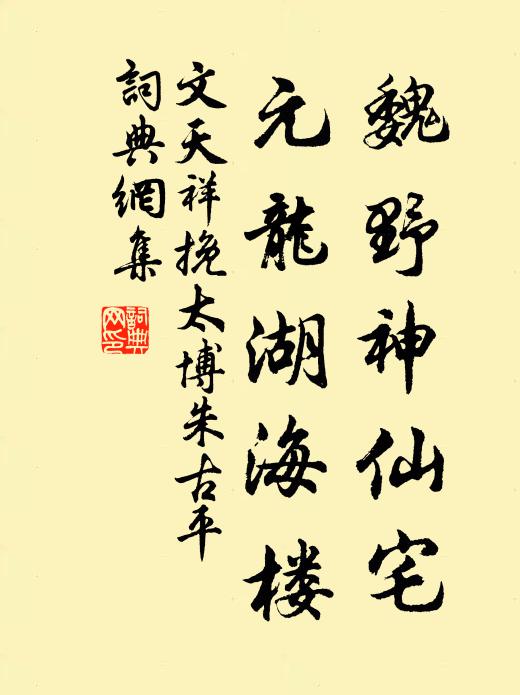 魏野神仙宅
元龍湖海楼
文天祥挽太博朱古平
詞典網集
詞典网印